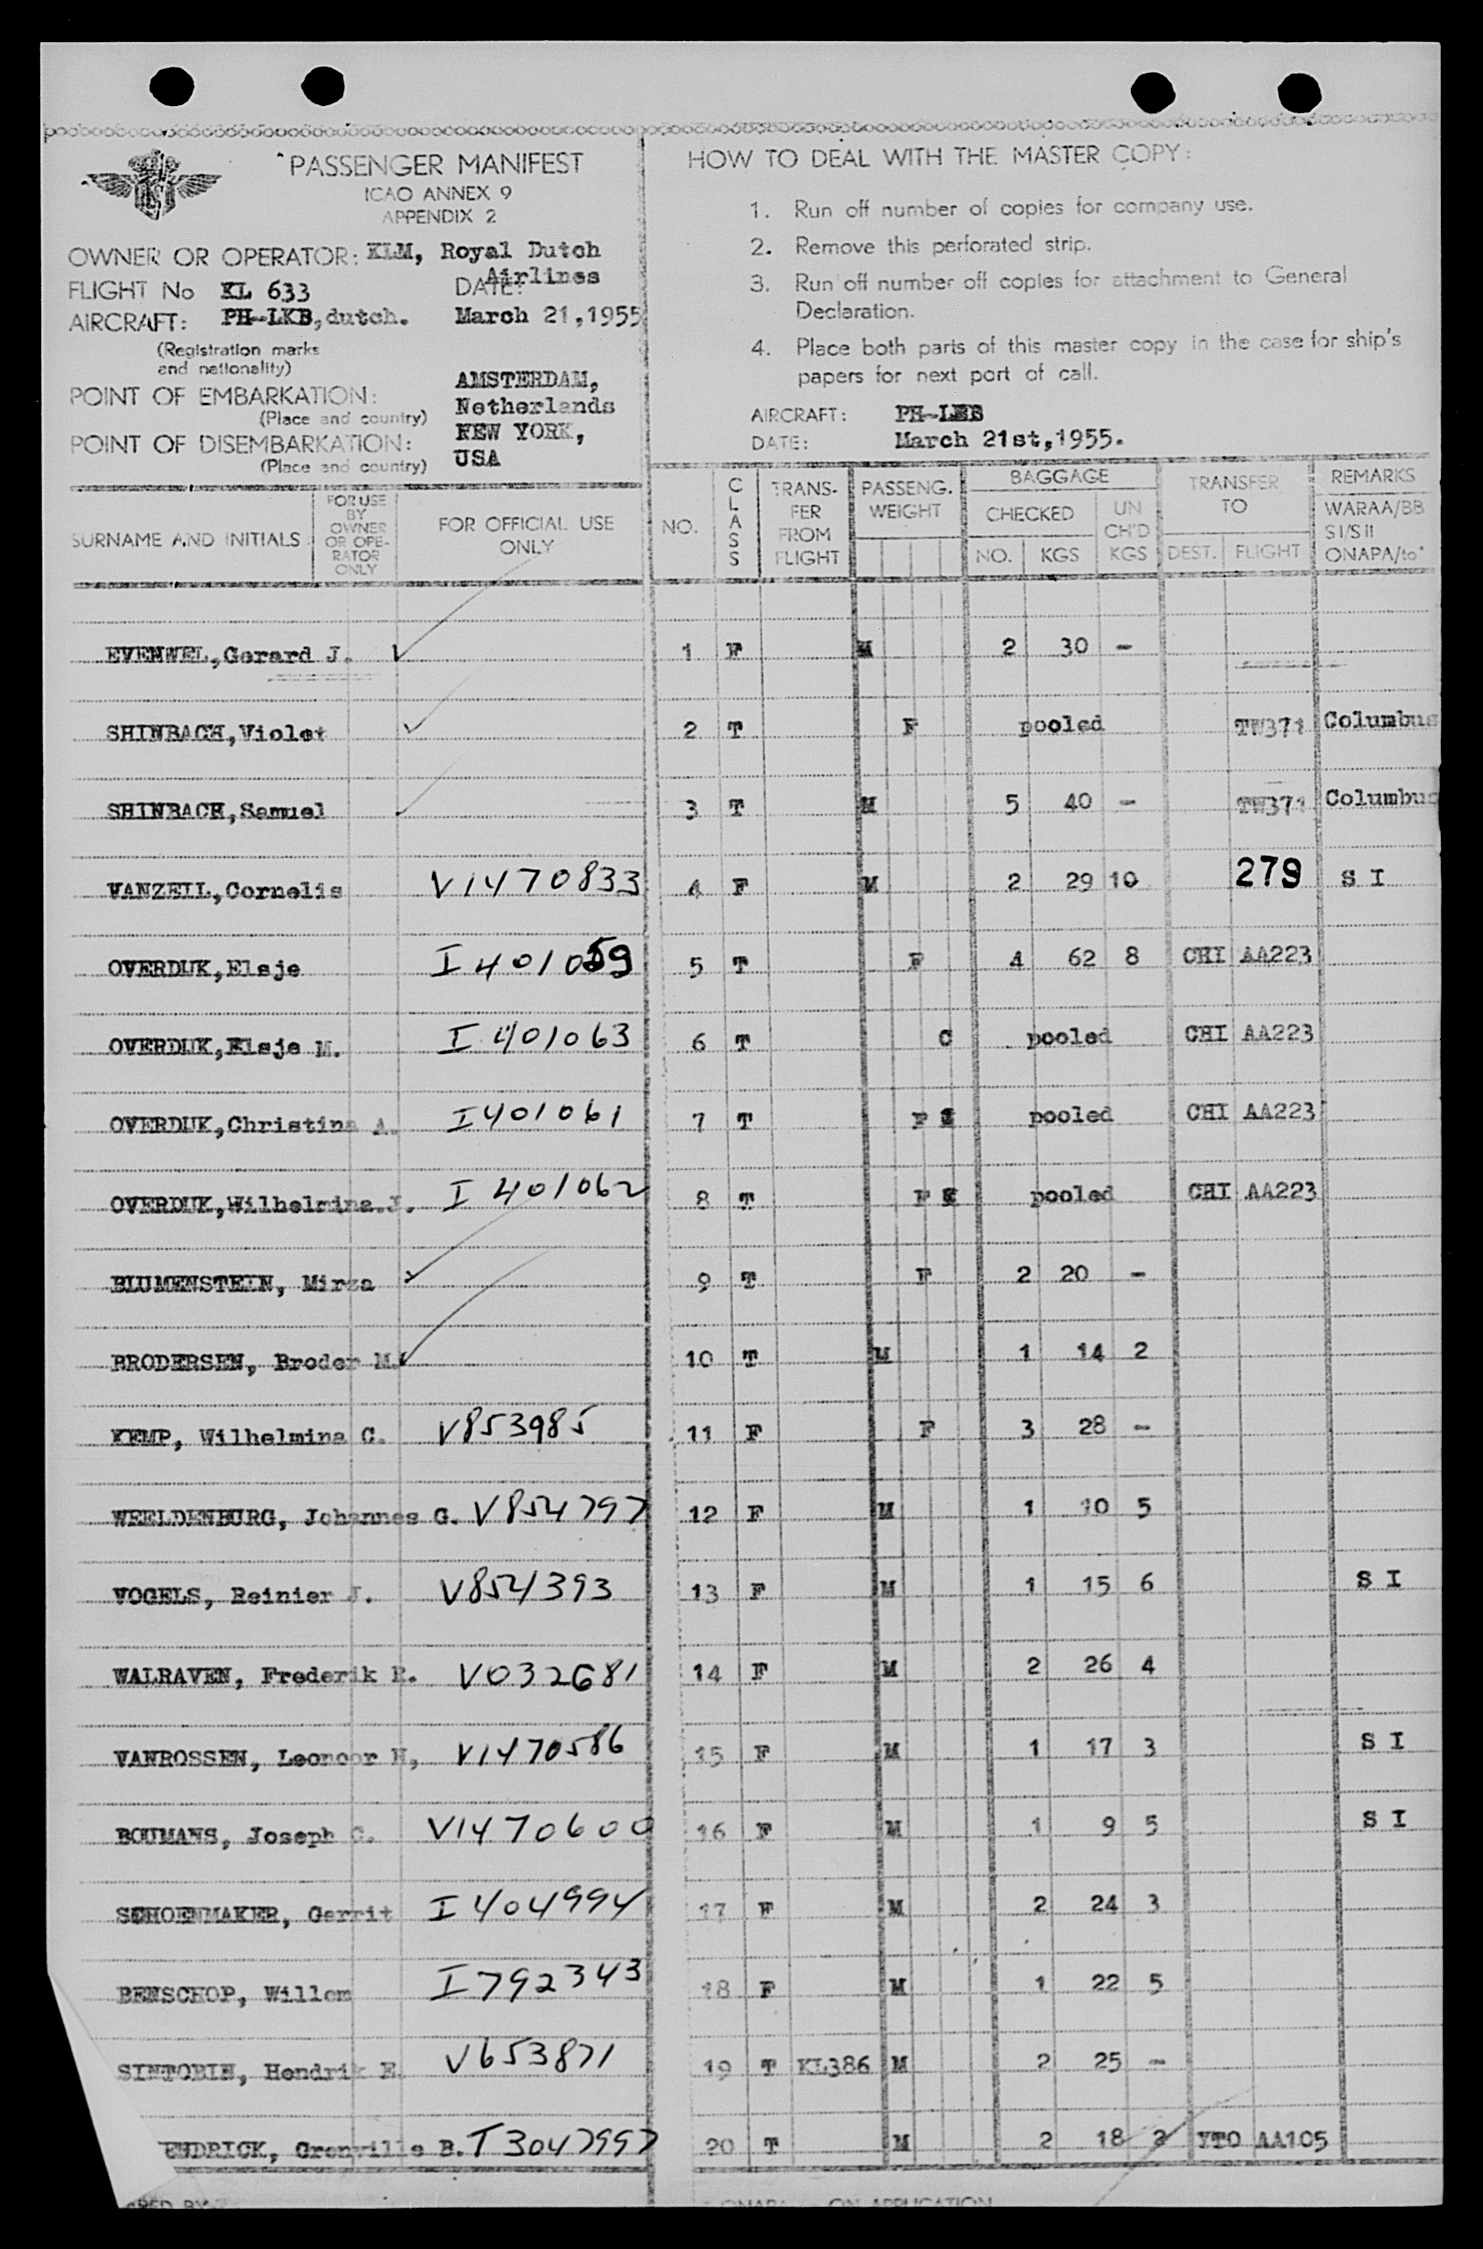 PASSENGER MANIFEST
ICAO ANNEX 9
APPENDIX 2
OWNER OR OPERATOR: KLM, Royal Dutch Airlines
FLIGHT No KL 633 DATE:
AIRCRAFT: PH-LKB, dutch. March 21, 1955
(Registration marks
and nationality)
POINT OF EMBARKATION: AMSTERDAM,
(Place and country) Netherlands
POINT OF DISEMBARKATION: NEW YORK,
(Place and country) USA
HOW TO DEAL WITH THE MASTER COPY:
1. Run off number of copies for company use.
2. Remove this perforated strip.
3. Run off number off copies for attachment to General
Declaration.
4. Place both parts of this master copy in the case for ship's
papers for next port of call.
AIRCRAFT: PH-LKB
DATE: March 21st, 1955.
SURNAME AND INITIALS
FOR USE
BY
OWNER
OR OPE-
RATOR
ONLY
FOR OFFICIAL USE
ONLY
NO.
CLASS
TRANS-
FER
FROM
FLIGHT
PASSENG.
WEIGHT
BAGGAGE
CHECKED
NO. KGS
UN
CH'D
KGS
TRANSFER
TO
DEST. FLIGHT
REMARKS
WARAA/BB
SI/SII
ONAPA/to'
EVENWEL, Gerard J. 1 F M 2 30 -
SHINBACH, Violet 2 T F pooled TW371 Columbus
SHINBACH, Samuel 3 T M 5 40 - TW371 Columbus
VANZEIL, Cornelis V1470833 4 F M 2 29 10 279 S I
OVERDIJK, Elsje I401059 5 T F 4 62 8 CHI AA223
OVERDIJK, Elsje M. I 401063 6 T C pooled CHI AA223
OVERDIJK, Christina A. I401061 7 T F pooled CHI AA223
OVERDIJK, Wilhelmina.J. I 401062 8 T F pooled CHI AA223
BLUMENSTEIN, Mirza 9 T F 2 20 -
BRODERSEN, Broder M. 10 T M 1 14 2
KEMP, Wilhelmina C. V853985 11 F F 3 28 -
WEELDENBURG, Johannes G. V854797 12 F M 1 10 5
VOGELS, Reinier J. V854393 13 F M 1 15 6 S I
WALRAVEN, Frederik R. V032681 14 F M 2 26 4
VANROSSEN, Leonoor H, V1470586 15 F M 1 17 3 S I
BOUMANS, Joseph C. V1470600 16 F M 1 9 5 S I
SCHOENMAKER, Gerrit I 404994 17 F M 2 24 3
BENSCHOP, Willem I792343 18 F M 1 22 5
SINTOBIN, Hendrik E. V653871 19 T KL386 M 2 25 -
ENDRICK, Grenville B. T3047997 20 T M 2 18 2 YTO AA105
ON APPLICATION